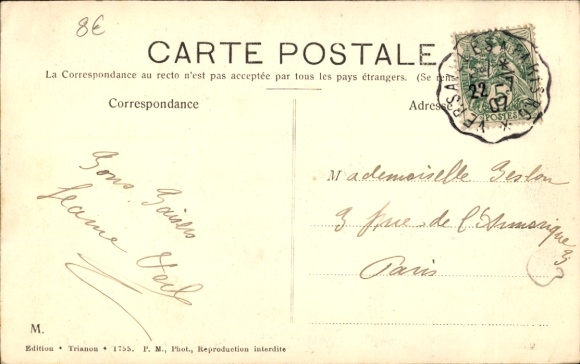 8€
CARTE POSTALE
La Correspondance au recto n'est pas acceptée par tous les pays étrangers. (Se rens
Correspondance
Adresse
VERSAILLES
22 -7
07
5
POSTES
Bons Baisers
Jeanne Veil
Mademoiselle Geslon
3 rue de l'Armorique
Paris
M.
Edition • Trianon • 1755. P. M., Phot., Reproduction interdite